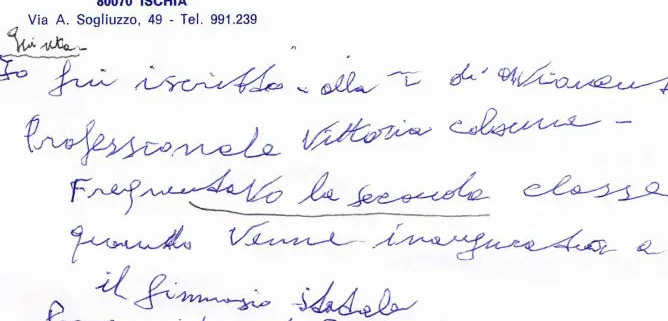 80070 ISCHIA
Via A. Sogliuzzo, 49 - Tel. 991.239
Io fui iscritto alla I di
Professionale Vittoria Colonna -
Frequentavo la seconda classe
quando venne inaugurata a
il ginnasio statale